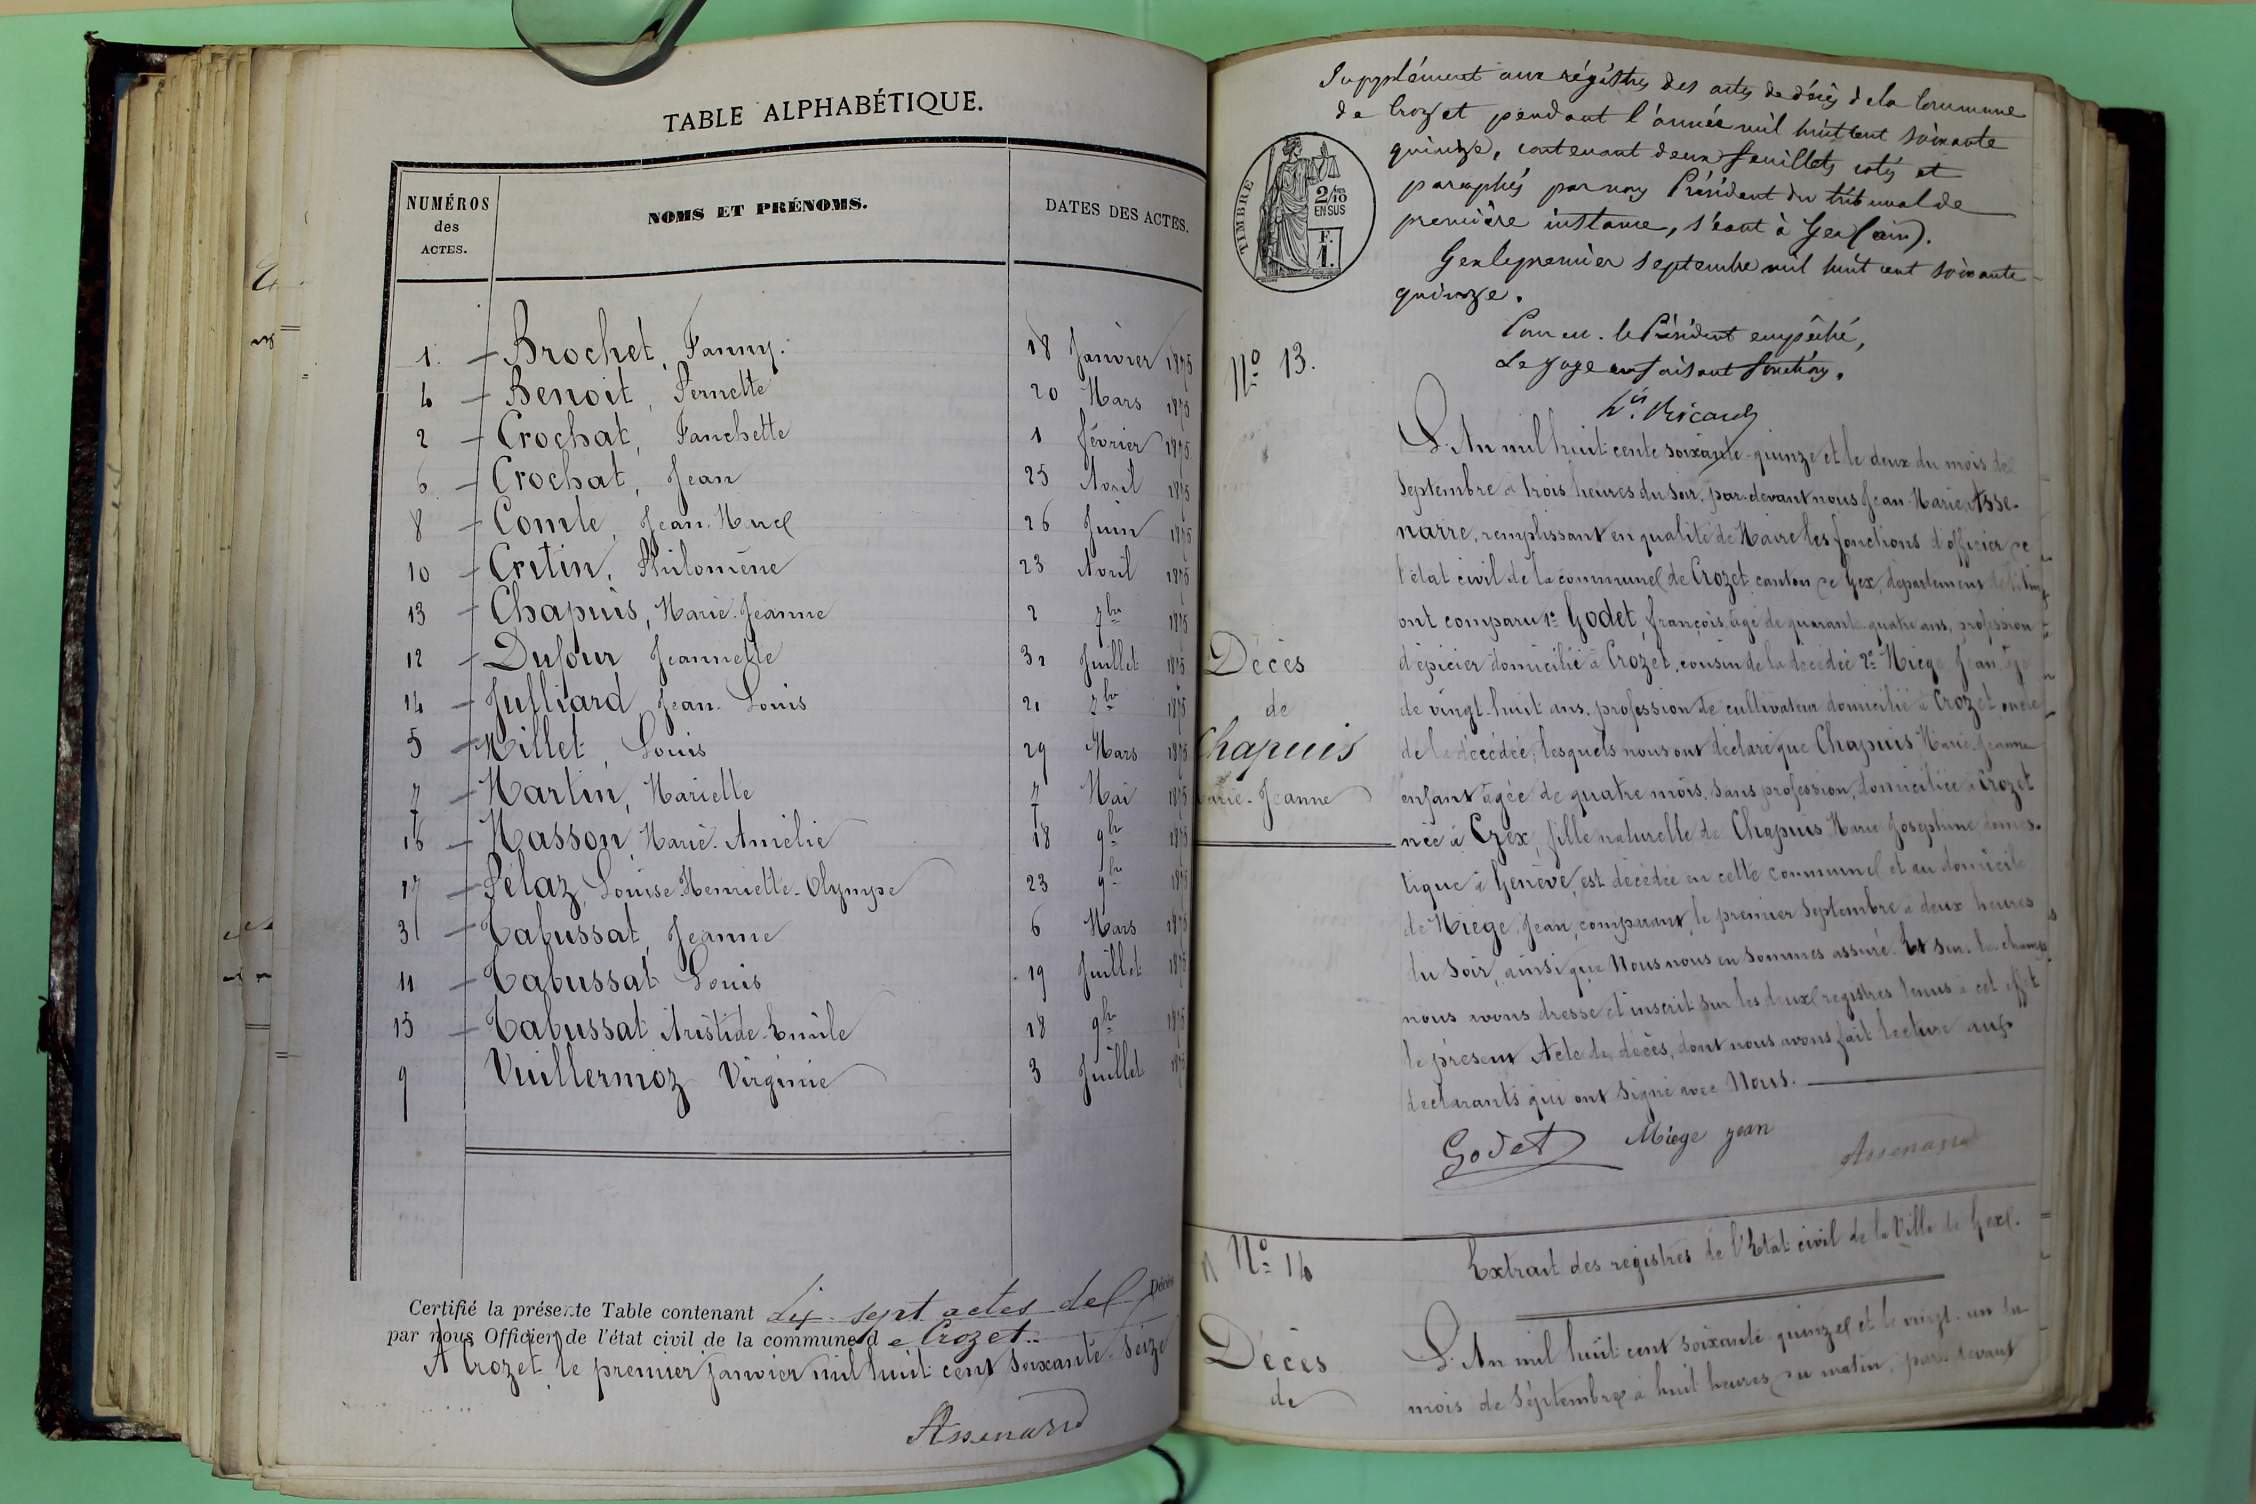 TABLE ALPHABÉTIQUE.
NUMÉROS des ACTES. NOMS ET PRÉNOMS. DATES DES ACTES.
1. Brochet, Fanny. 18 Janvier 1875
4 Benoit, Pernette 20 Mars 1875
2 Crochat, Fanchette 1 février 1875
6 Crochat, Jean 25 Avril 1875
8 Comte, Jean-Marie 26 Juin 1875
10 Cretin, Philomène 23 Avril 1875
13 Chapuis, Marie-Jeanne 2 7bre 1875
12 Dufour Jeannette 31 Juillet 1875
14 Julliard Jean-Louis 21 7bre 1875
5 Millet, Louis 29 Mars 1875
7 Martin, Mariette 7 Mai 1875
16 Masson, Marie-Amélie 18 9bre 1875
17 Pélaz, Louise-Henriette-Olympe 23 9bre 1875
3 Tabussat, Jeanne 6 Mars 1875
11 Tabussat Louis 19 Juillet 1875
15 Tabussat Aristide-Emile 18 9bre 1875
9 Vuillermoz Virginie 3 Juillet 1875
Certifié la présente Table contenant dix-sept actes de Décès
par nous Officier de l'état civil de la commune de Crozet.
A Crozet, le premier janvier mil huit cent soixante-seize
Assenard
Supplément aux régistres des actes de décès de la Commune
de Crozet pendant l'année mil huit cent soixante
quinze, contenant deux feuillets cotés et
paraphés par nous Président du tribunal de
première instance, séant à Gex (ain).
Gex le premier septembre mil huit cent soixante
quinze.
Pour M. le Président empêché,
Le Juge en faisant fonction.
Ricard
TIMBRE
2/10 EN SUS
F. 1.
No 13.
Décès
de
Chapuis
Marie-Jeanne
L'An mil huit cent soixante-quinze et le deux du mois de
Septembre à trois heures du soir, par-devant nous Jean-Marie Asse-
narre, remplissant en qualité de Maire les fonctions d'officier de
l'état civil de la commune de Crozet, canton de Gex, département de l'Ain
ont comparu 1° Godet, françois, âgé de quarante-quatre ans, profession
d'épicier domicilié à Crozet, cousin de la décédée 2° Miège Jean, âgé
de vingt-huit ans, profession de cultivateur domicilié à Crozet, oncle
de la décédée; lesquels nous ont déclaré que Chapuis Marie-Jeanne
enfant âgée de quatre mois, sans profession, domiciliée à Crozet
née à Gex, fille naturelle de Chapuis Marie Joséphine domes-
tique à Genève, est décédée en cette commune et au domicile
de Miège, Jean, comparant, le premier Septembre à deux heures
du soir, ainsi que Nous nous en sommes assuré. Et sur-le-champ
nous avons dressé et inscrit sur les deux registres tenus à cet effet
le présent Acte de décès, dont nous avons fait lecture aux
déclarants qui ont signé avec Nous.
Godet Miège jean Assenard
No 14
Décès
de
Extrait des registres de l'Etat-civil de la Ville de Gex.
L'An mil huit cent soixante-quinze et le vingt-un du
mois de Septembre à huit heures du matin, par-devant